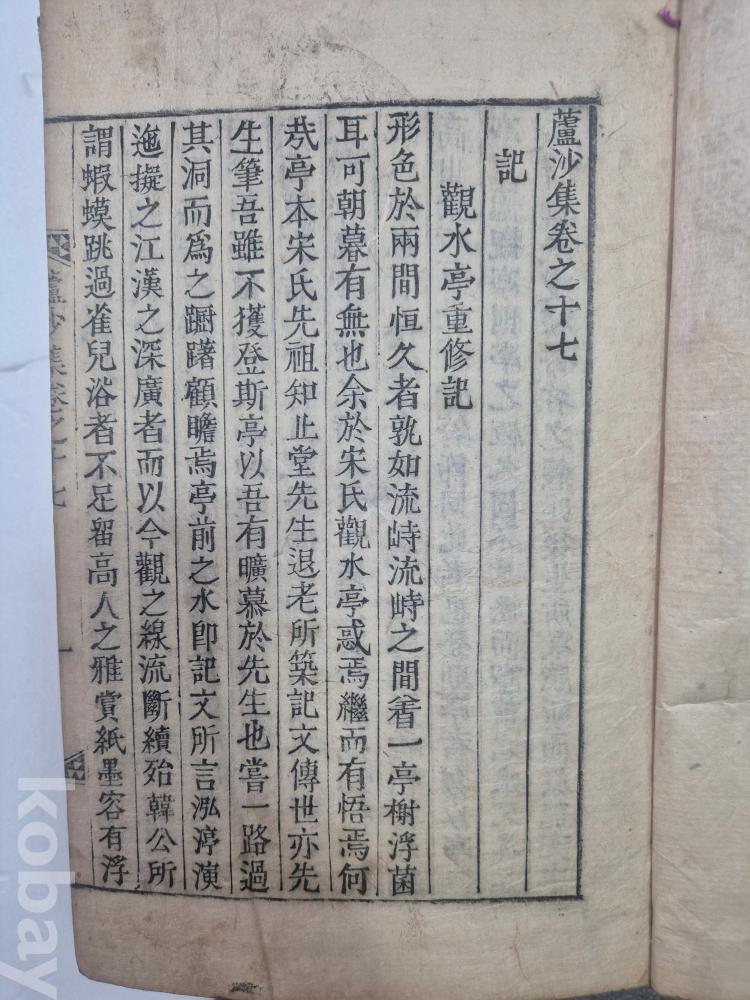 蘆沙集卷之十七
記
觀水亭重修記
形色於兩間恒久者孰如流峙流峙之間着一亭榭浮菌
耳可朝暮有無也余於宋氏觀水亭惑焉繼而有悟焉何
㢤亭本宋氏先祖知止堂先生退老所築記文傳世亦先
生筆吾雖不獲登斯亭以吾有曠慕於先生也嘗一路過
其洞而爲之躕躇顧瞻焉亭前之水卽記文所言泓渟演
迤擬之江漢之深廣者而以今觀之線流斷續殆韓公所
謂蝦蟆跳過雀兒浴者不足留高人之雅賞紙墨容有浮
蘆沙集卷之十七
一
kobay